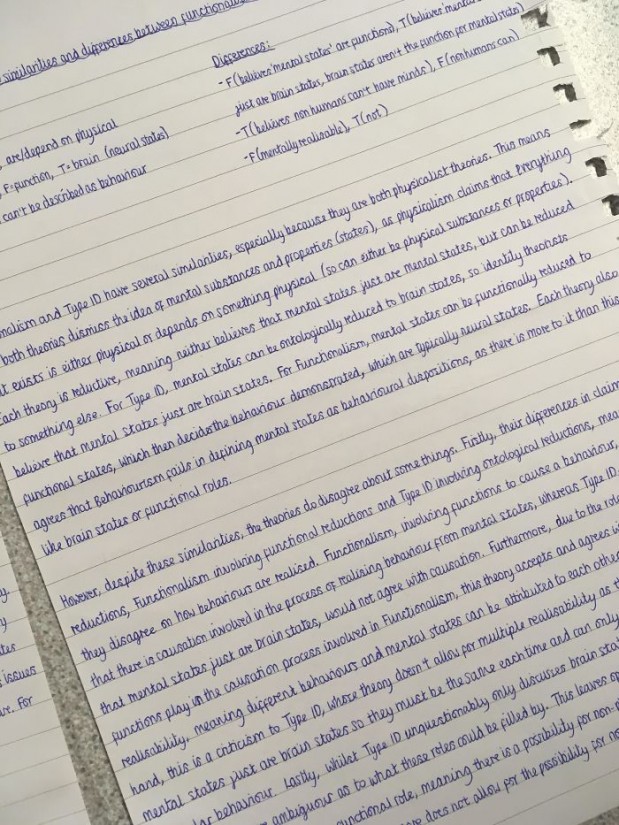 similarities and differences between functionalis
Differences:
- F(believes 'mental states' are functions), T(believes 'mental
just are brain states, brain states aren't the function for mental states)
- T(believes non humans can't have minds), F(nonhumans can)
- F(mentally realisable), T(not)
are/depend on physical
F=function, T=brain (neural states)
can't be described as behaviour
nalism and Type ID have several similarities, especially because they are both physicalist theories. This means
both theories dismiss the idea of mental substances and properties (states), as physicalism claims that everything
t exists is either physical or depends on something physical (so can either be physical substances or properties).
Each theory is reductive, meaning neither believes that mental states just are mental states, but can be reduced
to something else. For Type ID, mental states can be ontologically reduced to brain states, so identity theorists
believe that mental states just are brain states. For Functionalism, mental states can be functionally reduced to
functional states, which then decides the behaviour demonstrated, which are typically neural states. Each theory also
agrees that Behaviourism fails in defining mental states as behavioural dispositions, as there is more to it than this
like brain states or functional roles.
However, despite these similarities, the theories do disagree about some things. Firstly, their differences in claim
reductions, Functionalism involving functional reductions and Type ID involving ontological reductions, mea
they disagree on how behaviours are realised. Functionalism, involving functions to cause a behaviour,
that there is causation involved in the process of realising behaviour from mental states, whereas Type ID
that mental states just are brain states, would not agree with causation. Furthermore, due to the role
functions play in the causation process involved in Functionalism, this theory accepts and agrees wi
realisability, meaning different behaviours and mental states can be attributed to each other
hand, this is a criticism to Type ID, whose theory doesn't allow for multiple realisability as th
mental states just are brain states so they must be the same each time and can only
lar behaviour. Lastly, whilst Type ID unquestionably only discusses brain sta
ambiguous as to what these roles could be filled by. This leaves op
unctional role, meaning there is a possibility for non-p
does not allow for the possibility for no
issues
ve. For